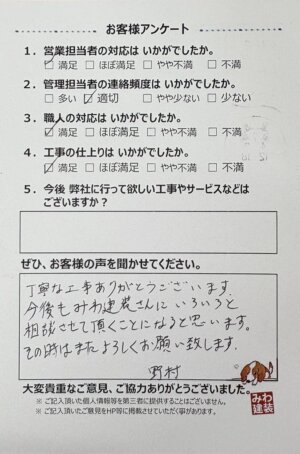 お客様アンケート
1．営業担当者の対応は いかがでしたか。
☑満足 □ほぼ満足 □やや不満 □不満
2．管理担当者の連絡頻度は いかがでしたか。
□多い ☑適切 □やや少ない □少ない
3．職人の対応は いかがでしたか。
☑満足 □ほぼ満足 □やや不満 □不満
4．工事の仕上りは いかがでしたか。
☑満足 □ほぼ満足 □やや不満 □不満
5．今後 弊社に行って欲しい工事やサービスなどは
ございますか？
ぜひ、お客様の声を聞かせてください。
丁寧な工事ありがとうございます。
今後もみわ建装さんにいろいろと
相談させて頂くことになると思います。
その時はまたよろしくお願い致します。
野村
大変貴重なご意見、ご協力ありがとうございました。
※ ご記入頂いた個人情報等を第三者に提供することはございません。
※ ご記入頂いたご意見をHP等に掲載させていただく事があります。
みわ
建装